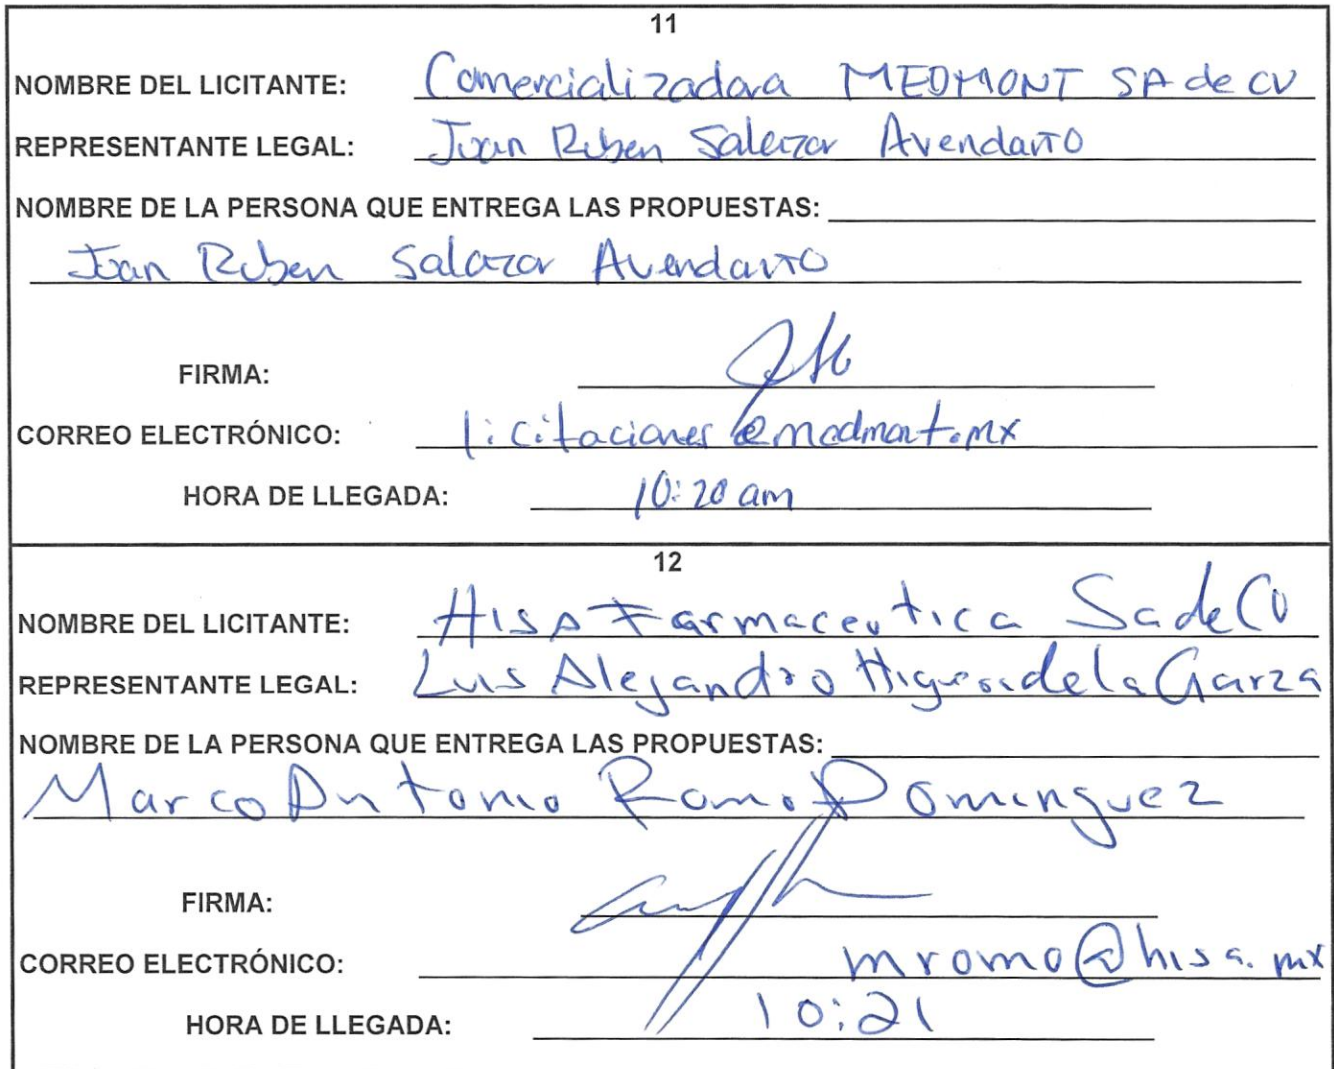 11
NOMBRE DEL LICITANTE: Comercializadora MEDMONT SA de CV
REPRESENTANTE LEGAL: Juan Ruben Salazar Avendaño
NOMBRE DE LA PERSONA QUE ENTREGA LAS PROPUESTAS:
Juan Ruben Salazar Avendaño
FIRMA:
CORREO ELECTRÓNICO: licitaciones@medmont.mx
HORA DE LLEGADA: 10:20 am
12
NOMBRE DEL LICITANTE: HISA Farmaceutica Sa de CV
REPRESENTANTE LEGAL: Luis Alejandro Higuera de la Garza
NOMBRE DE LA PERSONA QUE ENTREGA LAS PROPUESTAS:
Marco Antonio Romo Dominguez
FIRMA:
CORREO ELECTRÓNICO: mromo@hisa.mx
HORA DE LLEGADA: 10:21